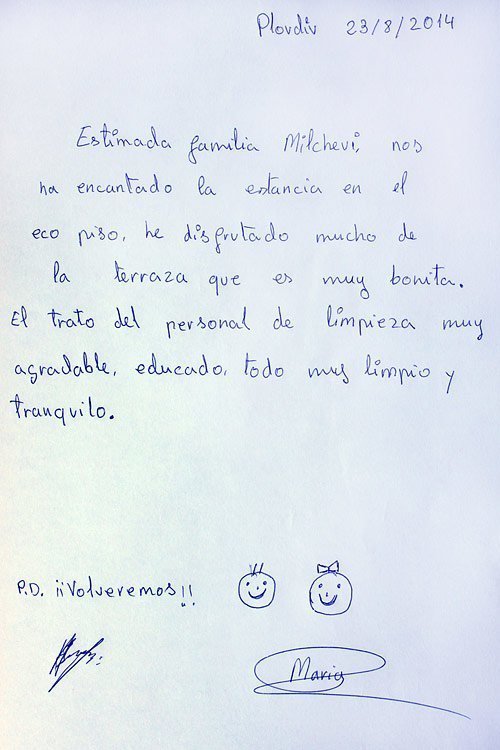 Plovdiv 23/8/2014
Estimada familia Milchevi, nos
ha encantado la estancia en el
eco piso, he disfrutado mucho de
la terraza que es muy bonita.
El trato del personal de limpieza muy
agradable, educado, todo muy limpio y
tranquilo.
P.D. ¡¡Volveremos!!
Maria